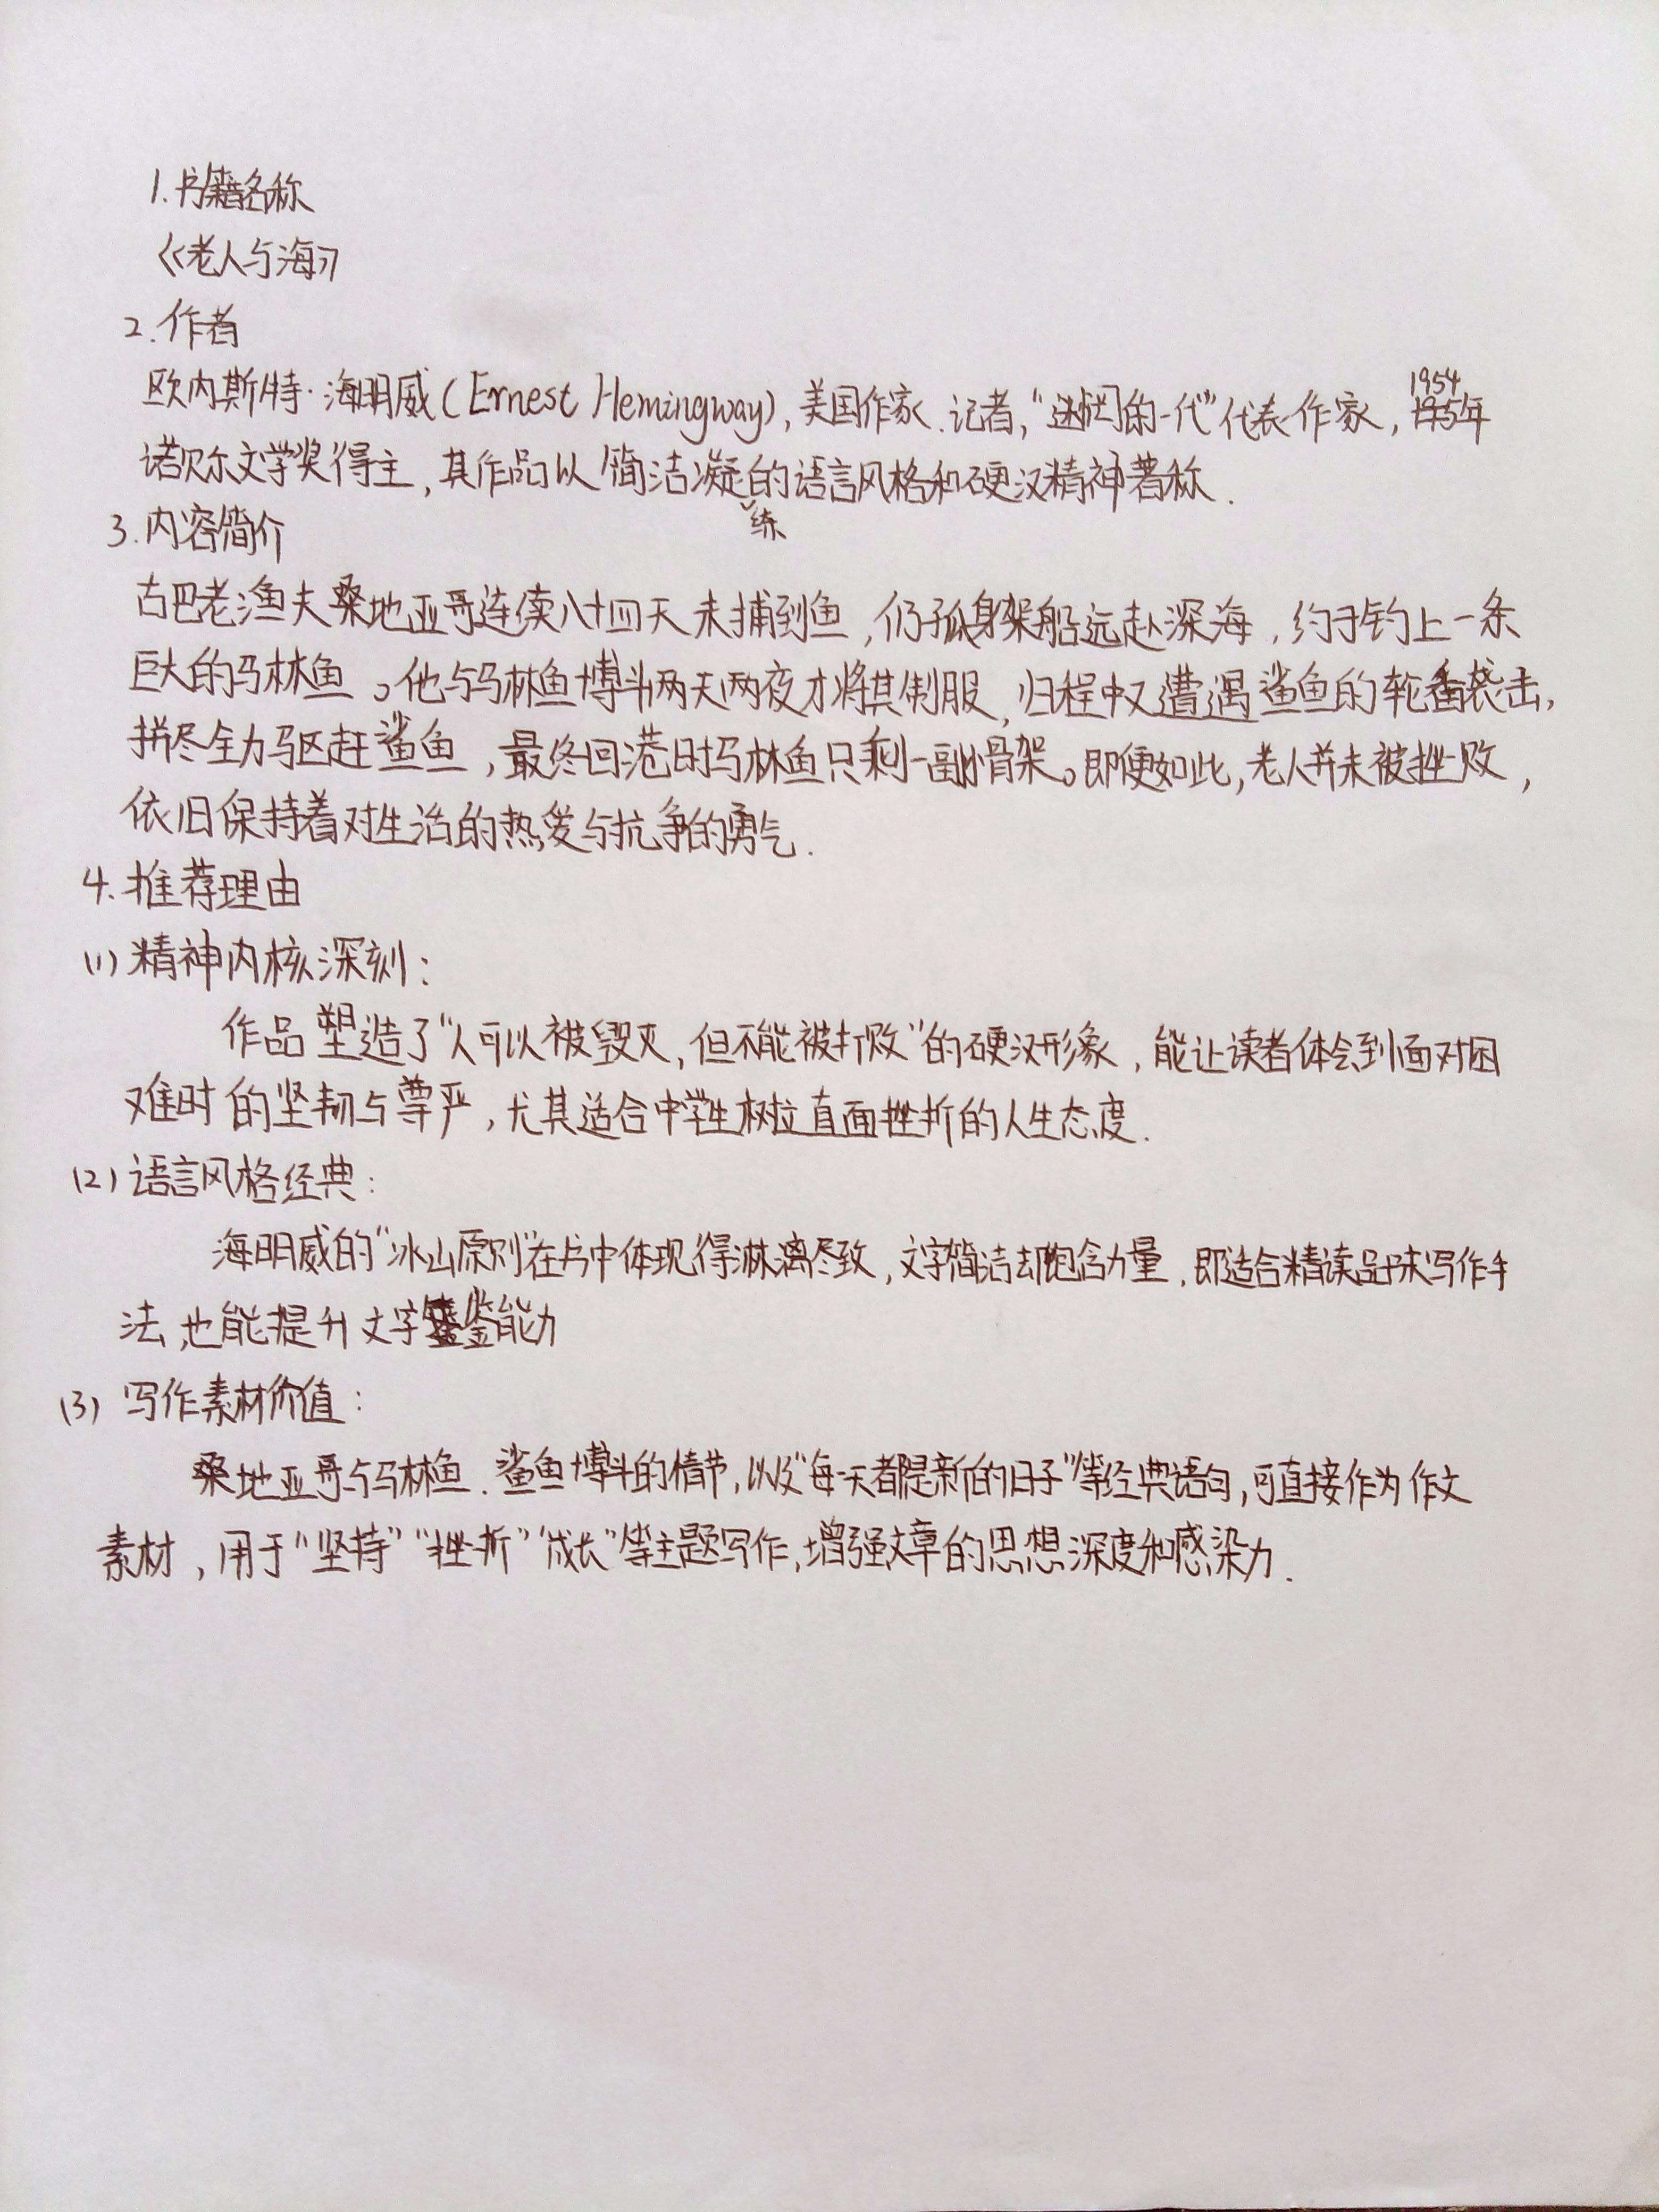 1.书籍名称
《老人与海》
2.作者
欧内斯特·海明威(Ernest Hemingway),美国作家、记者,“迷惘的一代”代表作家,1954年
诺贝尔文学奖得主,其作品以简洁凝练的语言风格和硬汉精神著称.
3.内容简介
古巴老渔夫桑地亚哥连续八十四天未捕到鱼,仍孤身架船远赴深海,约于钓上一条
巨大的马林鱼。他与马林鱼博斗两天两夜才将其制服,归程中又遭遇鲨鱼的轮番袭击,
拼尽全力驱赶鲨鱼,最终回港时马林鱼只剩一副骨架。即便如此,老人并未被挫败,
依旧保持着对生活的热爱与抗争的勇气.
4.推荐理由
(1)精神内核深刻:
作品塑造了“人可以被毁灭,但不能被打败”的硬汉形象,能让读者体会到面对困
难时的坚韧与尊严,尤其适合中学生树立直面挫折的人生态度.
(2)语言风格经典:
海明威的“冰山原则”在书中体现得淋漓尽致,文字简洁却饱含力量,即适合精读品味写作手
法,也能提升文字鉴能力
(3)写作素材价值:
桑地亚哥与马林鱼、鲨鱼博斗的情节,以及“每一天都是新的日子”等经典语句,可直接作为作文
素材,用于“坚持”“挫折”“成长”等主题写作,增强文章的思想深度和感染力.